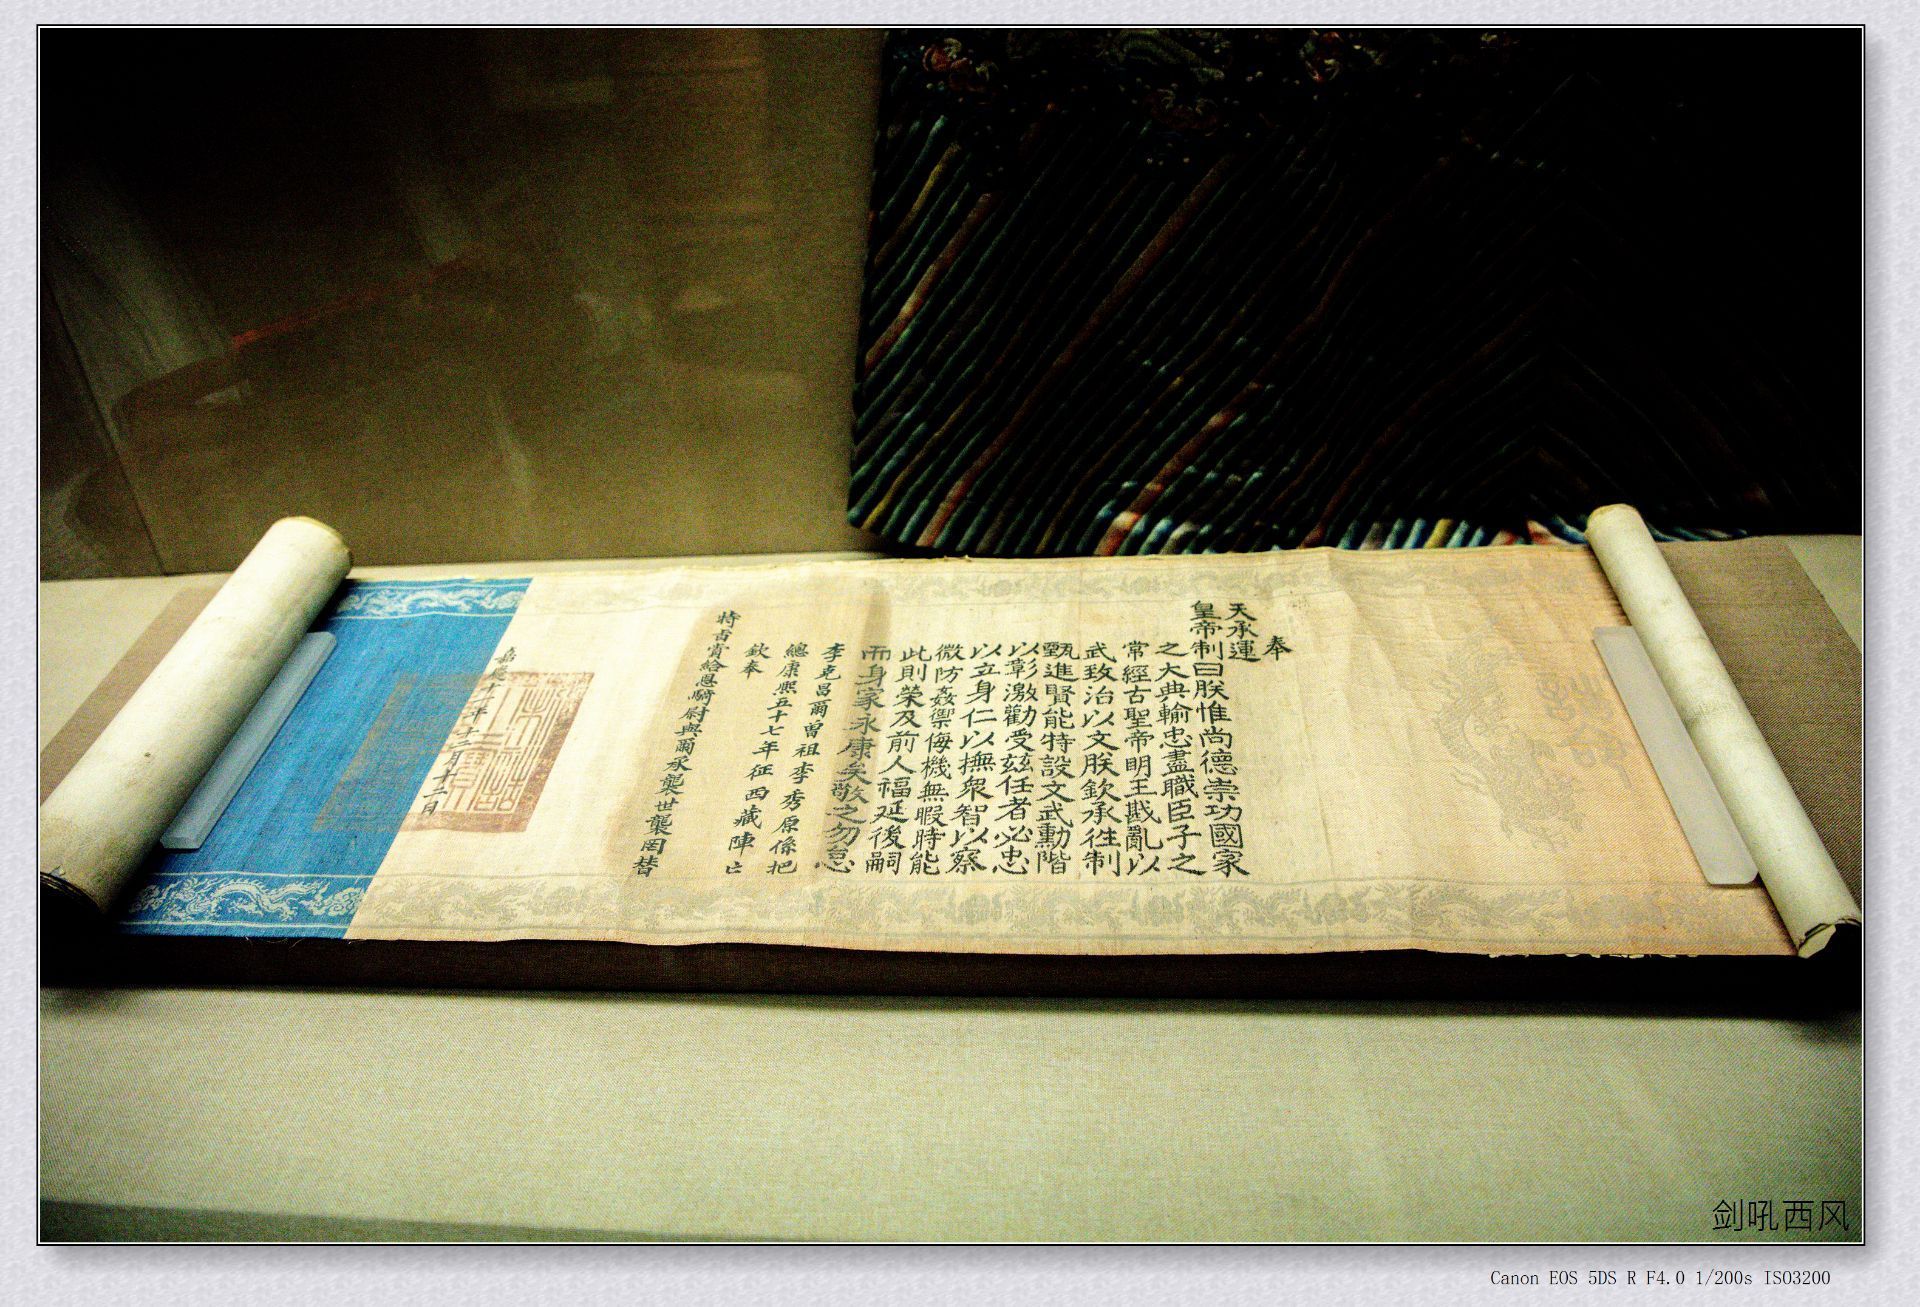 奉
天承運
皇帝制曰朕惟尚德崇功國家
之大典輸忠盡職臣子之
常經古聖帝明王戡亂以
武致治以文朕欽承徃制
甄進賢能特設文武勳階
以彰激勸受茲任者必忠
以立身仁以撫衆智以察
微防姦禦侮機無暇時能
此則榮及前人福延後嗣
而身家永康矣敬之勿怠
李克昌爾曾祖李秀原係把
總康熙五十七年征西藏陣亡
欽奉
特旨賞給恩騎尉與爾承襲世襲罔替
嘉慶十二年十二月十二日
剑吼西风
Canon EOS 5DS R F4.0 1/200s ISO3200